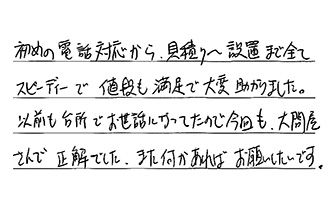 初めの電話対応から、見積りへ設置まで全て
スピーディーで 値段も満足で大変助かりました。
以前も台所でお世話になってたので今回も、大問屋
さんで 正解でした。また何かあれば お願いしたいです。